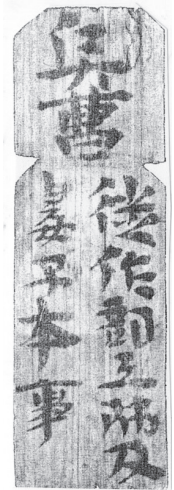 兵曹
徙作部工師及
妻子本事